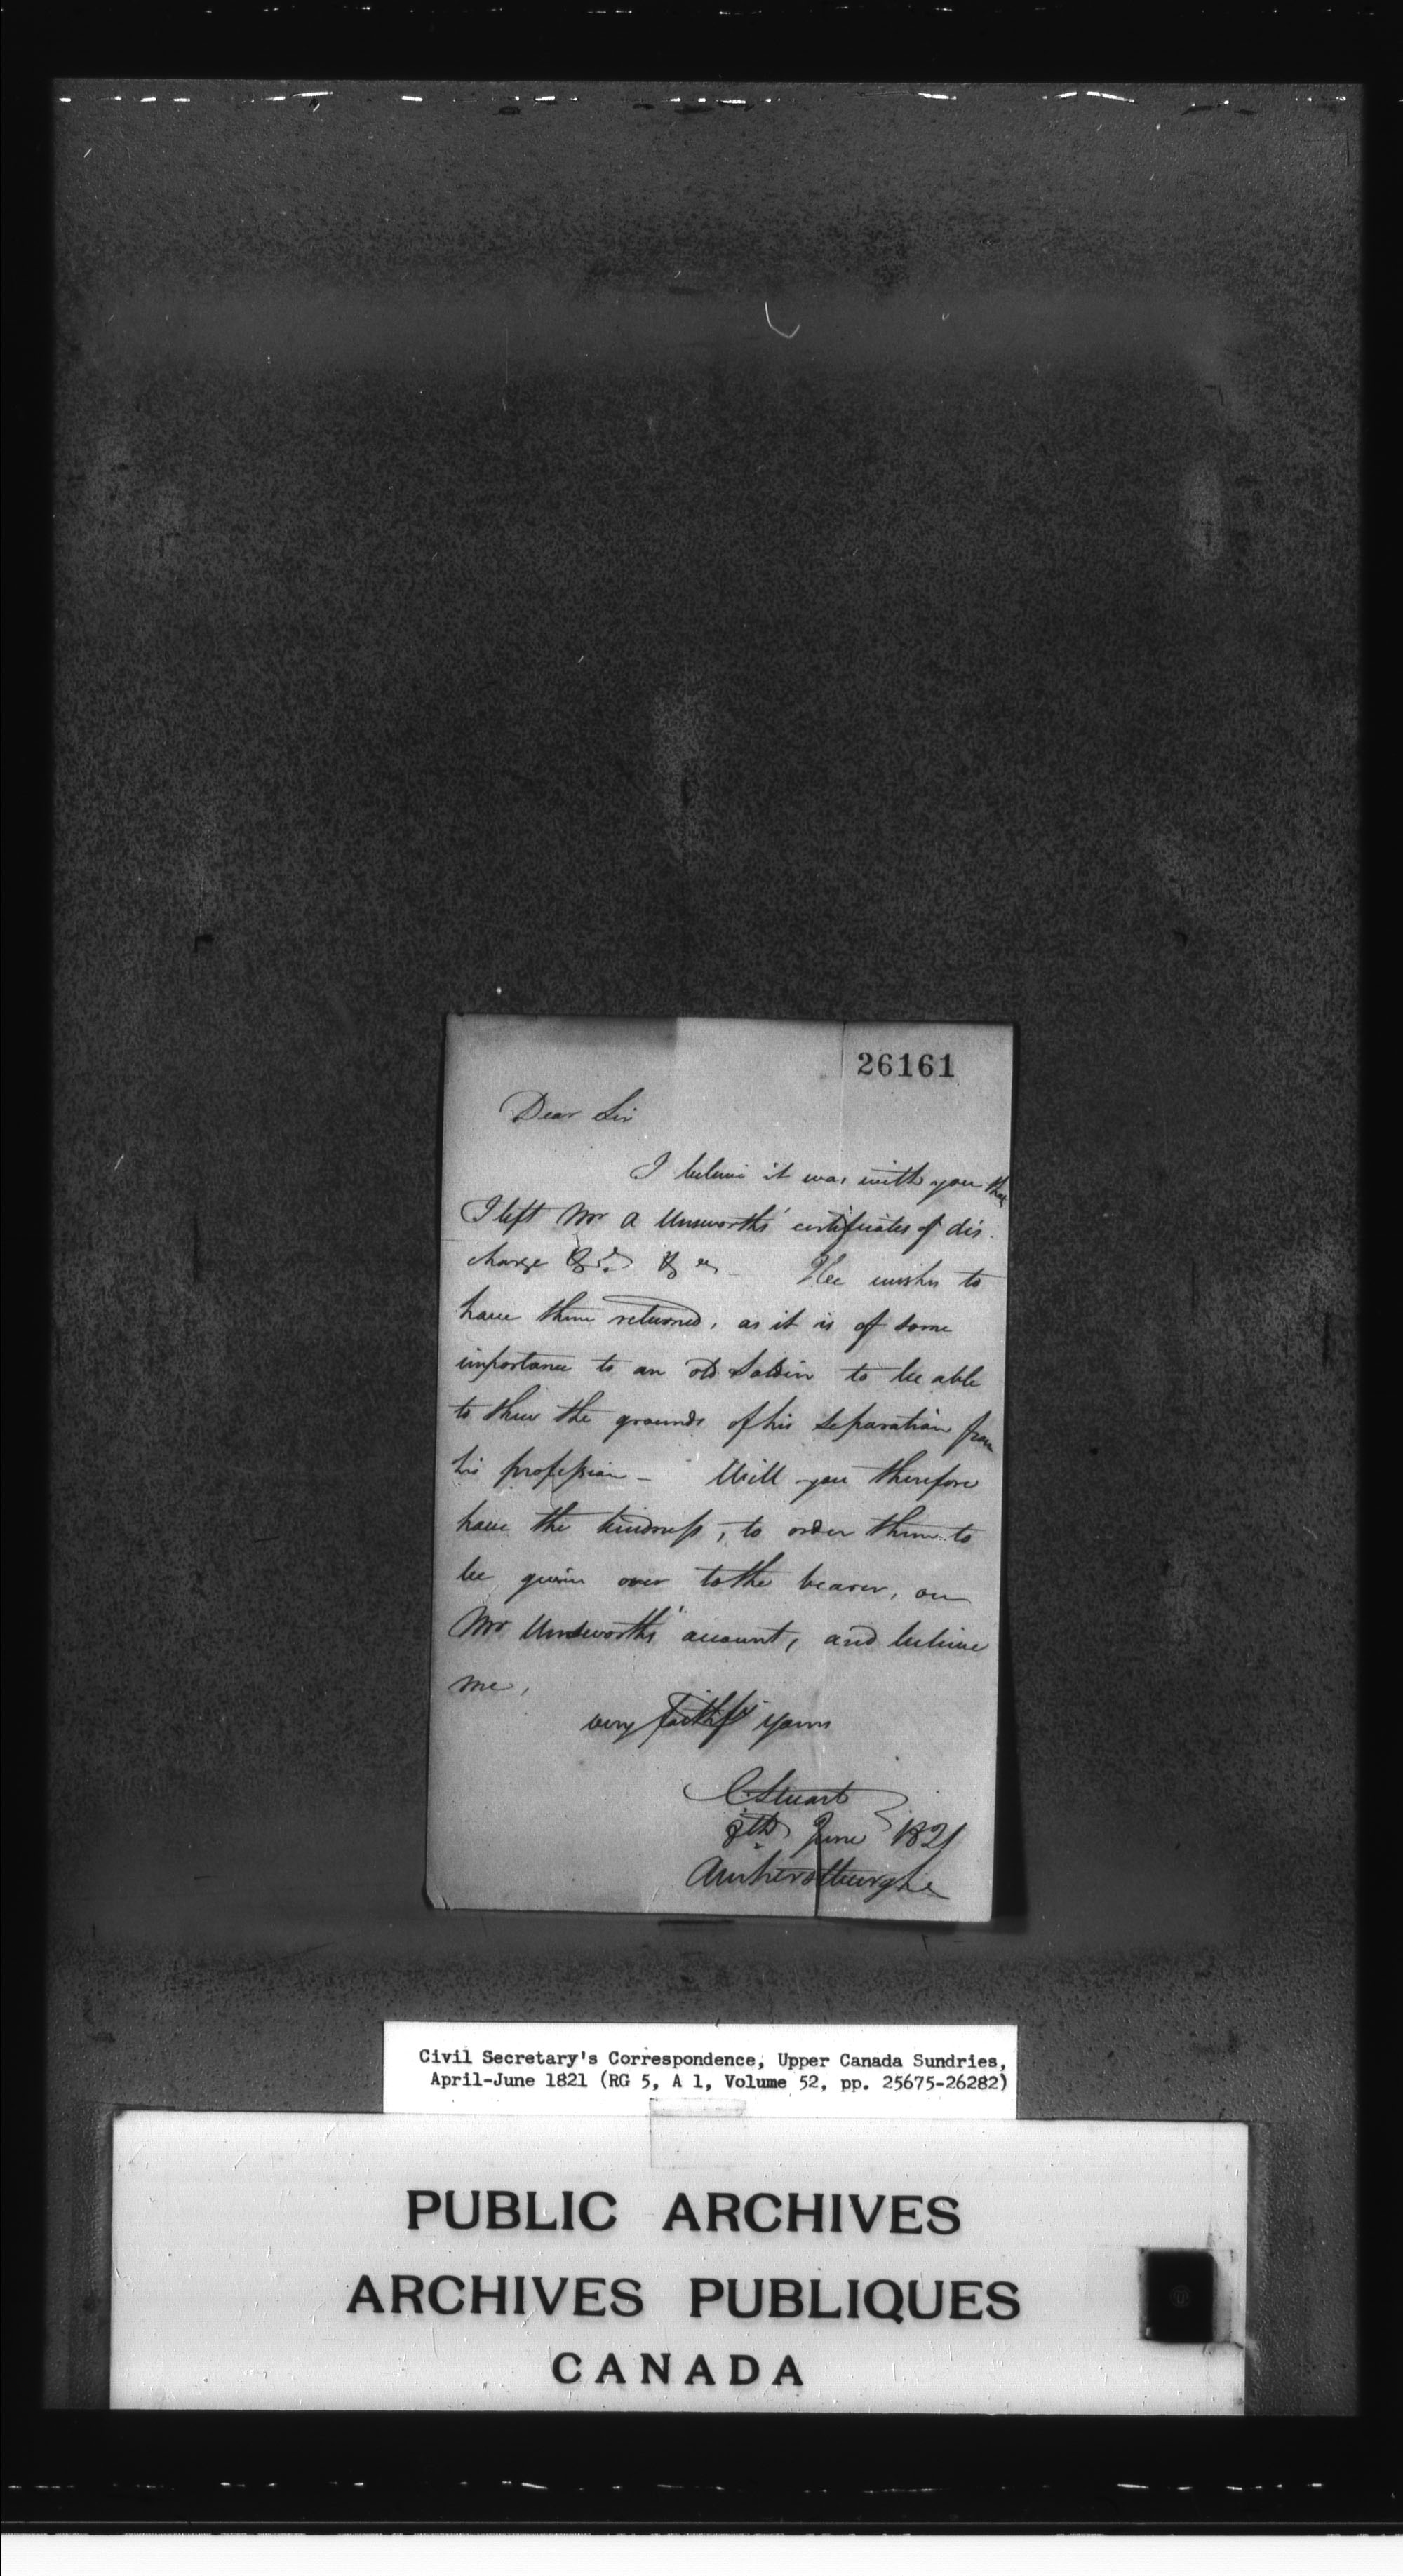 26161
Dear Sir
I believe it was with you that
I left Mr A Unsworths' certificates of dis-
charge &c. &c. He wishes to
have them returned, as it is of some
importance to an old Soldier to be able
to shew the grounds of his separation from
his profession - Will you therefore
have the kindness, to order them to
be given over to the bearer, on
Mr Unsworths' account, and believe
me,
very faithfy yours
C Stuart
8th June 1821
Amherstburghe
Civil Secretary's Correspondence, Upper Canada Sundries,
April-June 1821 (RG 5, A 1, Volume 52, pp. 25675-26282)
PUBLIC ARCHIVES
ARCHIVES PUBLIQUES
CANADA